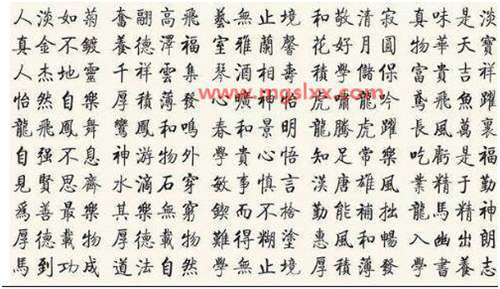 人淡如菊 奮翮高飛 藝無止境 和敬清寂 真味是淡
真金不鍍 養德澤福 室雅蘭馨 花好月圓 物華天寶
人杰地靈 千祥雲集 琴酒相壽 積學儲保 富貴吉祥
怡然自樂 厚積薄發 心曠神怡 虎嘯龍吟 鳶飛魚躍
龍飛鳳舞 鸞鳳和鳴 春和景明 龍騰虎躍 長風萬裏
自强不息 神游物外 學貴心悟 知足常樂 吃虧是福
見賢思齊 水滴石穿 敏事慎言 漢唐雄風 業精于勤
爲善最樂 其樂無窮 鍥而不捨 勤能補拙 龍馬精神
厚德載物 厚德載物 難得糊塗 惠風和暢 入幽出朗
馬到功成 道法自然 學無止境 厚積薄發 學書養志
www.mqslxx.com